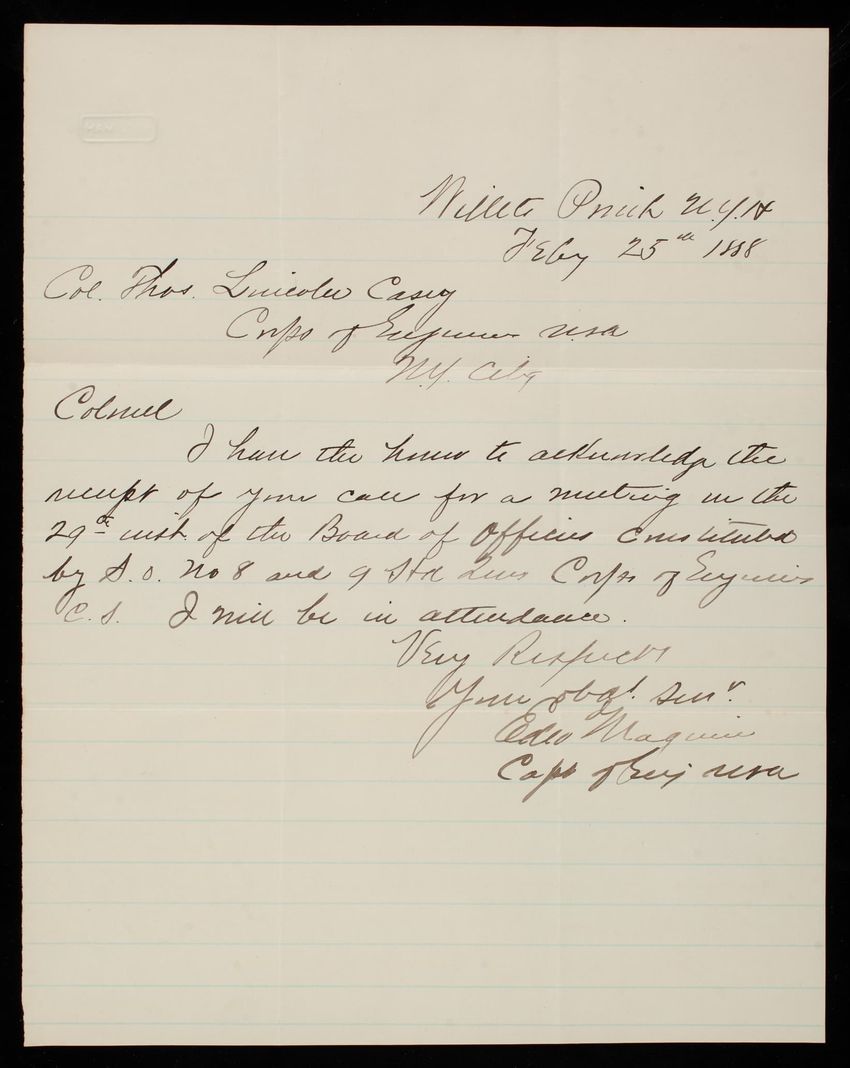 Willets Point N.Y.H
Feby 25th 1888
Col. Thos. Lincoln Casey
Corps of Engineers USA
N.Y. City
Colonel
I have the honor to acknowledge the
receipt of your call for a meeting on the
29th inst. of the Board of Officers constituted
by S.O. No 8 and 9 Hd Qurs Corps of Engineers
C.S. I will be in attendance.
Very Respectf
Your obdt. Servt.
Edw Maguire
Capt of Eng USA